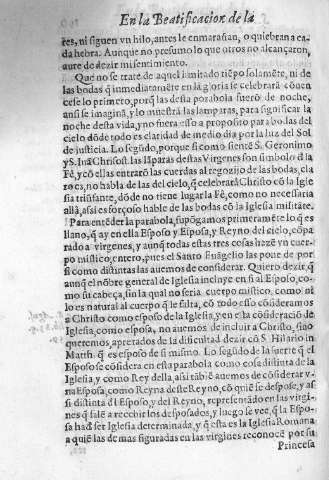 En la Beatificacion de la
res, ni siguen vn hilo, antes le enmarañan, o quiebran a ca-
da hebra. Aunque no presumo lo que otros no alcançaron,
aure de dezir mi sentimiento.
Que no se trate de aquel limitado tiẽpo solamẽte, ni de
las bodas q̃ inmediatamẽte en la gloria se celebrarã cõuen
cese lo primero, porq̃ las desta parabola fuerõ de noche,
ansi se imaginã, y lo muestrã las lamparas, para significar la
noche desta vida, y no fuera esso a proposito para bodas del
cielo dõde todo es claridad de medio dia por la luz del Sol
de justicia. Lo segũdo, porque si como siente S. Geronimo
y S. Iuã Chrisost. las lãparas destas Virgenes son simbolo d̃ la
Fè, y cõ ellas entrarõ las cuerdas al regozijo de las bodas, cla
ro es, no habla de las del cielo, q̃ celebrarà Christo cõ la Igle
sia triũfante, dõde no tiene lugar la Fè, como no necessaria
allà, assi es forçoso hable de las bodas cõ la Iglesia militãte.
Para entẽder la parabola, supõgamos primeramẽte lo q̃ es
llano, q̃ ay en ella Esposo y Esposa, y Reyno del cielo, cõpa-
rado a virgenes, y aunq̃ todas estas tres cosas hazẽ vn cuer-
po mistico, entero, pues el Santo Euãgelio las pone de por
si como distintas las auemos de considerar. Quiero dezir, q̃
aunq̃ el nõbre general de Iglesia incluye en si al Esposo, co-
mo su cabeça, sin la qual no seria cuerpo mistico, como ni
lo es natural al cuerpo q̃ le falta, cõ todo esso cõsideramos
a Christo como esposo de la Iglesia, y en esta cõsideraciõ de
Iglesia, como esposa, no auemos de incluir a Christo, sino
queremos, apretados de la dificultad dezir cõ S. Hilario in
Matth. q̃ es esposo de si mismo. Lo segũdo de la suerte q̃ el
Esposo se cõsidera en esta parabola como cosa distinta de la
Iglesia y como Rey della, assi tãbiẽ auemos de cõsiderar v-
na Esposa, como Reyna deste Reyno, cõ quiẽ se despose, y as
si distinta d̃l Esposo, y del Reyno, representado en las virgi-
nes q̃ salẽ a recebir los desposados, y luego se vee, q̃ la Espo-
sa ha d̃ ser Iglesia determinada, y q̃ esta es la Iglesia Romana
a quiẽ las demas figuradas en las virgines reconocẽ por su
Princesa